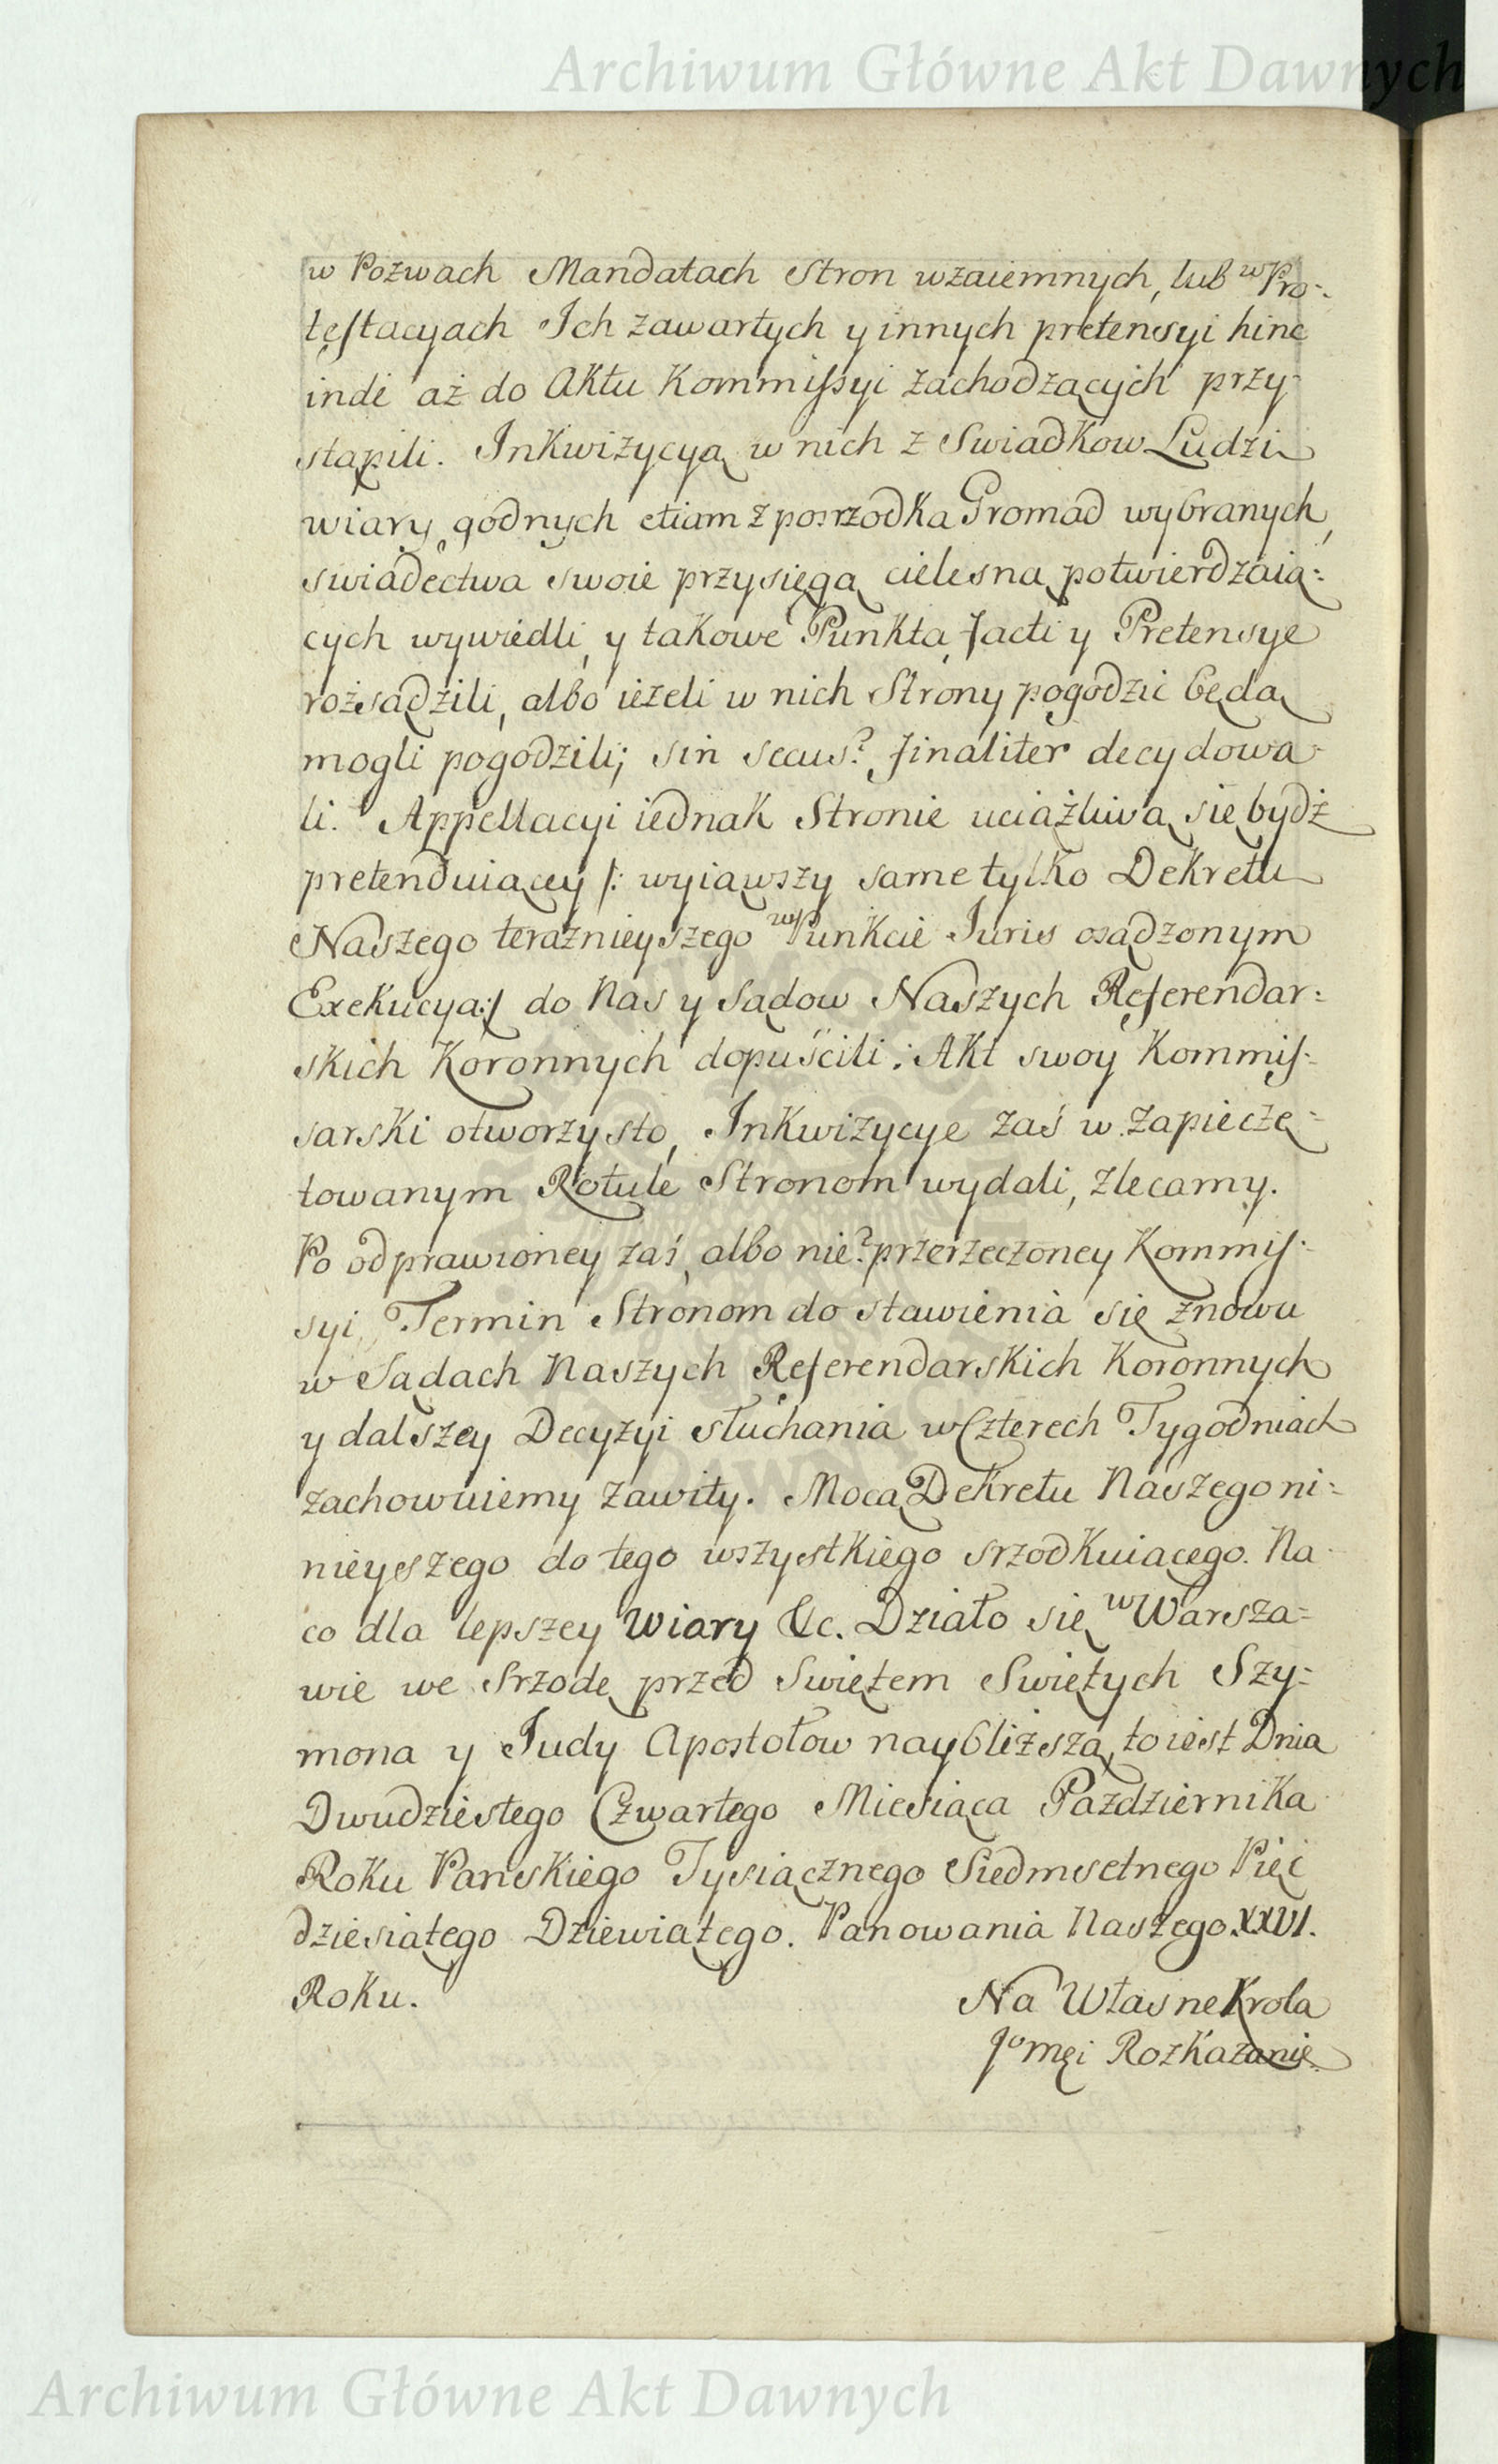 Archiwum Główne Akt Dawnych
w Pozwach Mandatach Stron wzaiemnych, lub w Pro-
testacyach Ich zawartych y innych pretensyi hinc
inde aż do Aktu Kommissyi zachodzących przy-
stąpili. Inkwizycyą w nich z Swiadkow Ludzi
wiary godnych etiam z posrzodka Gromad wybranych,
swiadectwa swoie przysięgą cielesną potwierdzaią:
cych wywiedli, y takowe Punkta facti y Pretensye
rozsądzili, albo ieżeli w nich Strony pogodzić będą
mogli pogodzili; sin secus? finaliter decydowa-
li. Appellacyi iednak Stronie uciążliwą się bydź
pretenduiącey /: wyiąwszy same tylko Dekretu
Naszego teraznieyszego w Punkcie Iuris osądzonym
Exekucyą:/ do Nas y Sądow Naszych Referendar:
skich Koronnych dopuścili; Akt swoy Kommis:
sarski otworzysto, Inkwizycye zaś w zapieczę-
towanym Rotule Stronom wydali, zlecamy.
Po odprawioney zaś, albo nie? przerzeczoney Kommis:
syi, Termin Stronom do stawienia się znowu
w Sądach Naszych Referendarskich Koronnych
y dalszey Decyzyi słuchania w Czterech Tygodniach
zachowuiemy zawity. Mocą Dekretu Naszego ni:
nieyszego do tego wszystkiego srzodkuiącego. Na
co dla lepszey Wiary &c. Działo się w Warsza=
wie we Srzodę przed Swiętem Swiętych Szy:
mona y Judy Apostołow naybliższą, to iest Dnia
Dwudziestego Czwartego Miesiąca Pazdziernika
Roku Panskiego Tysiącznego Siedmsetnego Pięć
dziesiątego Dziewiątego. Panowania Naszego XXVI.
Roku.
Na Własne Krola
Jo męi Rozkazanie
Archiwum Główne Akt Dawnych